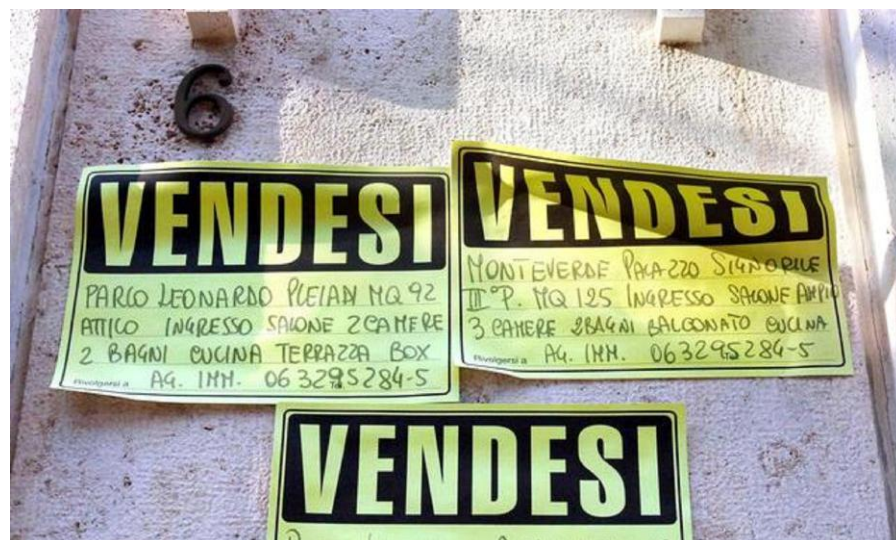 6
VENDESI
PARCO LEONARDO PLEIADI MQ 92
ATTICO INGRESSO SALONE 2 CAMERE
2 BAGNI CUCINA TERRAZZA BOX
Rivolgersi a AG. IMM. 0632295284-5
VENDESI
MONTEVERDE PALAZZO SIGNORILE
III° P. MQ 125 INGRESSO SALONE AMPIO
3 CAMERE 2 BAGNI BALCONATO CUCINA
Rivolgersi a AG. IMM. 063295284-5
VENDESI